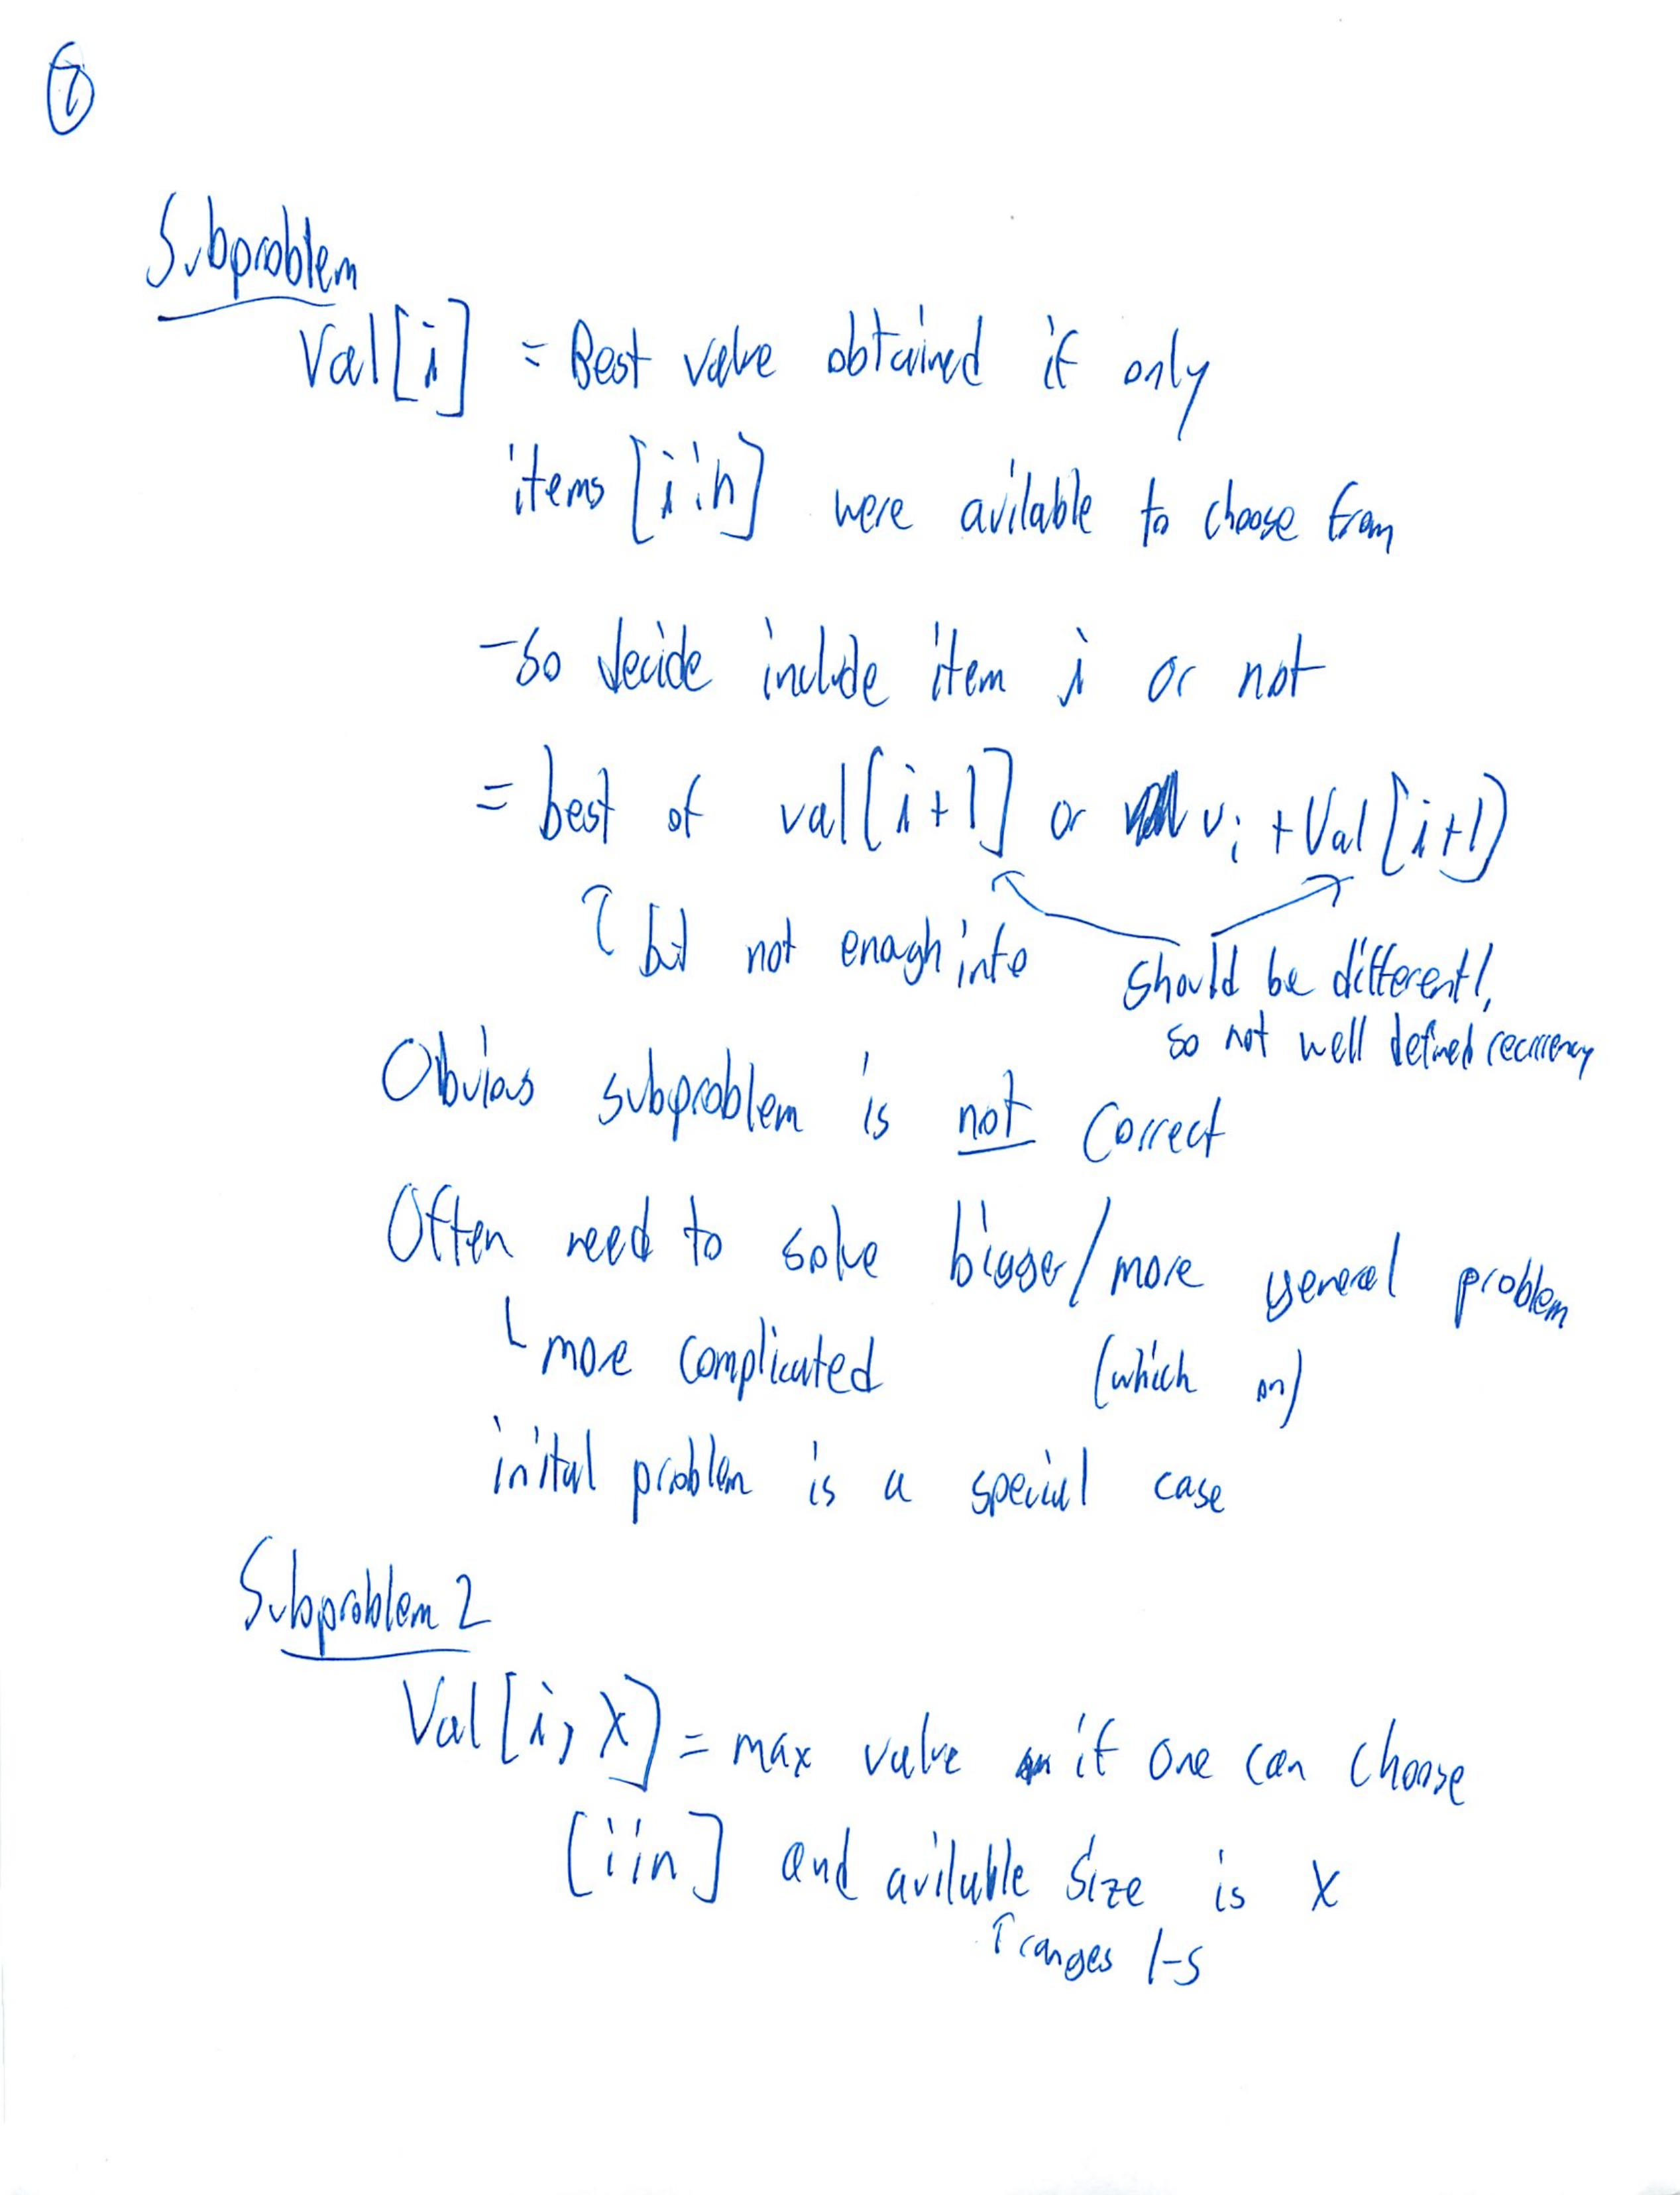 7
Subproblem
Val[i] = Best value obtained if only
items [i:n] were avilable to choose from
- so decide include item i or not
= best of val[i+1] or v_i + Val[i+1]
↑ but not enough info
should be different!
so not well defined recurrency
Obvious subproblem is not correct
Often need to solve bigger/more general problem
└ more complicated (which
inital problem is a special case
Subproblem 2
Val[i, X] = max value if one can choose
[i:n] and avilable size is X
↑ ranges 1-S